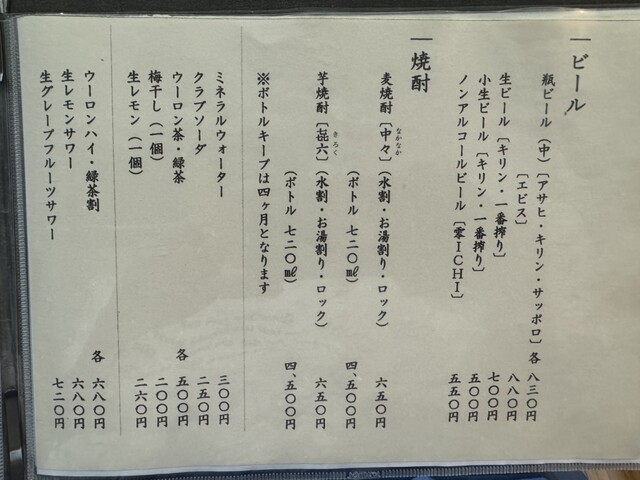 ビール
瓶ビール（中）〔アサヒ・キリン・サッポロ〕各 八三〇円
〔エビス〕 八八〇円
生ビール〔キリン・一番搾り〕 七〇〇円
小生ビール〔キリン・一番搾り〕 五五〇円
ノンアルコールビール〔零ＩＣＨＩ〕 五五〇円
焼酎
麦焼酎〔中々〕（水割・お湯割り・ロック） 六五〇円
なかなか
（ボトル 七二〇㎖） 四、五〇〇円
芋焼酎〔㐂六〕（水割・お湯割り・ロック） 六五〇円
きろく
（ボトル 七二〇㎖） 四、五〇〇円
※ボトルキープは四ヶ月となります
ミネラルウォーター 三〇〇円
クラブソーダ 二五〇円
ウーロン茶・緑茶 各 五〇〇円
梅干し（一個） 二〇〇円
生レモン（一個） 二六〇円
ウーロンハイ・緑茶割 各 六八〇円
生レモンサワー 六八〇円
生グレープフルーツサワー 七二〇円